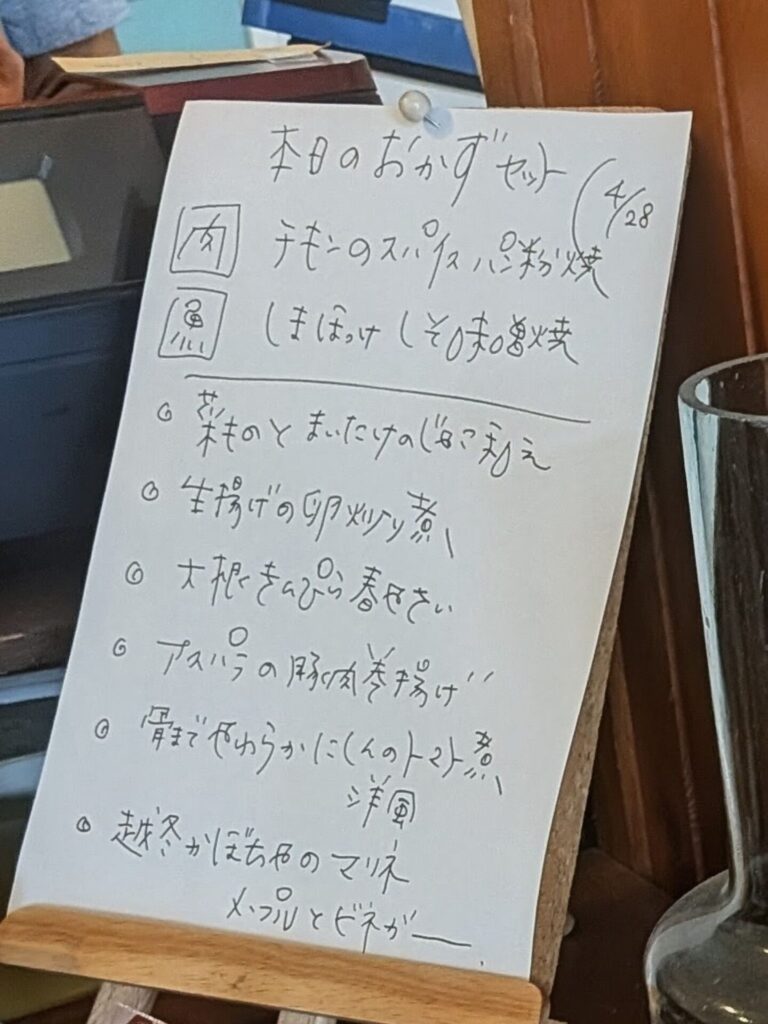 本日のおかずセット (4/28
肉 チキンのスパイスパン粉焼
魚 しまほっけしそ味噌焼
菜ものとまいたけのじゃこ和え
生揚げの卵炒り煮
大根きんぴら春やさい
アスパラの豚肉巻揚げ
骨までやわらかにしんのトマト煮
洋風
越冬かぼちゃのマリネ
メープルとビネガー